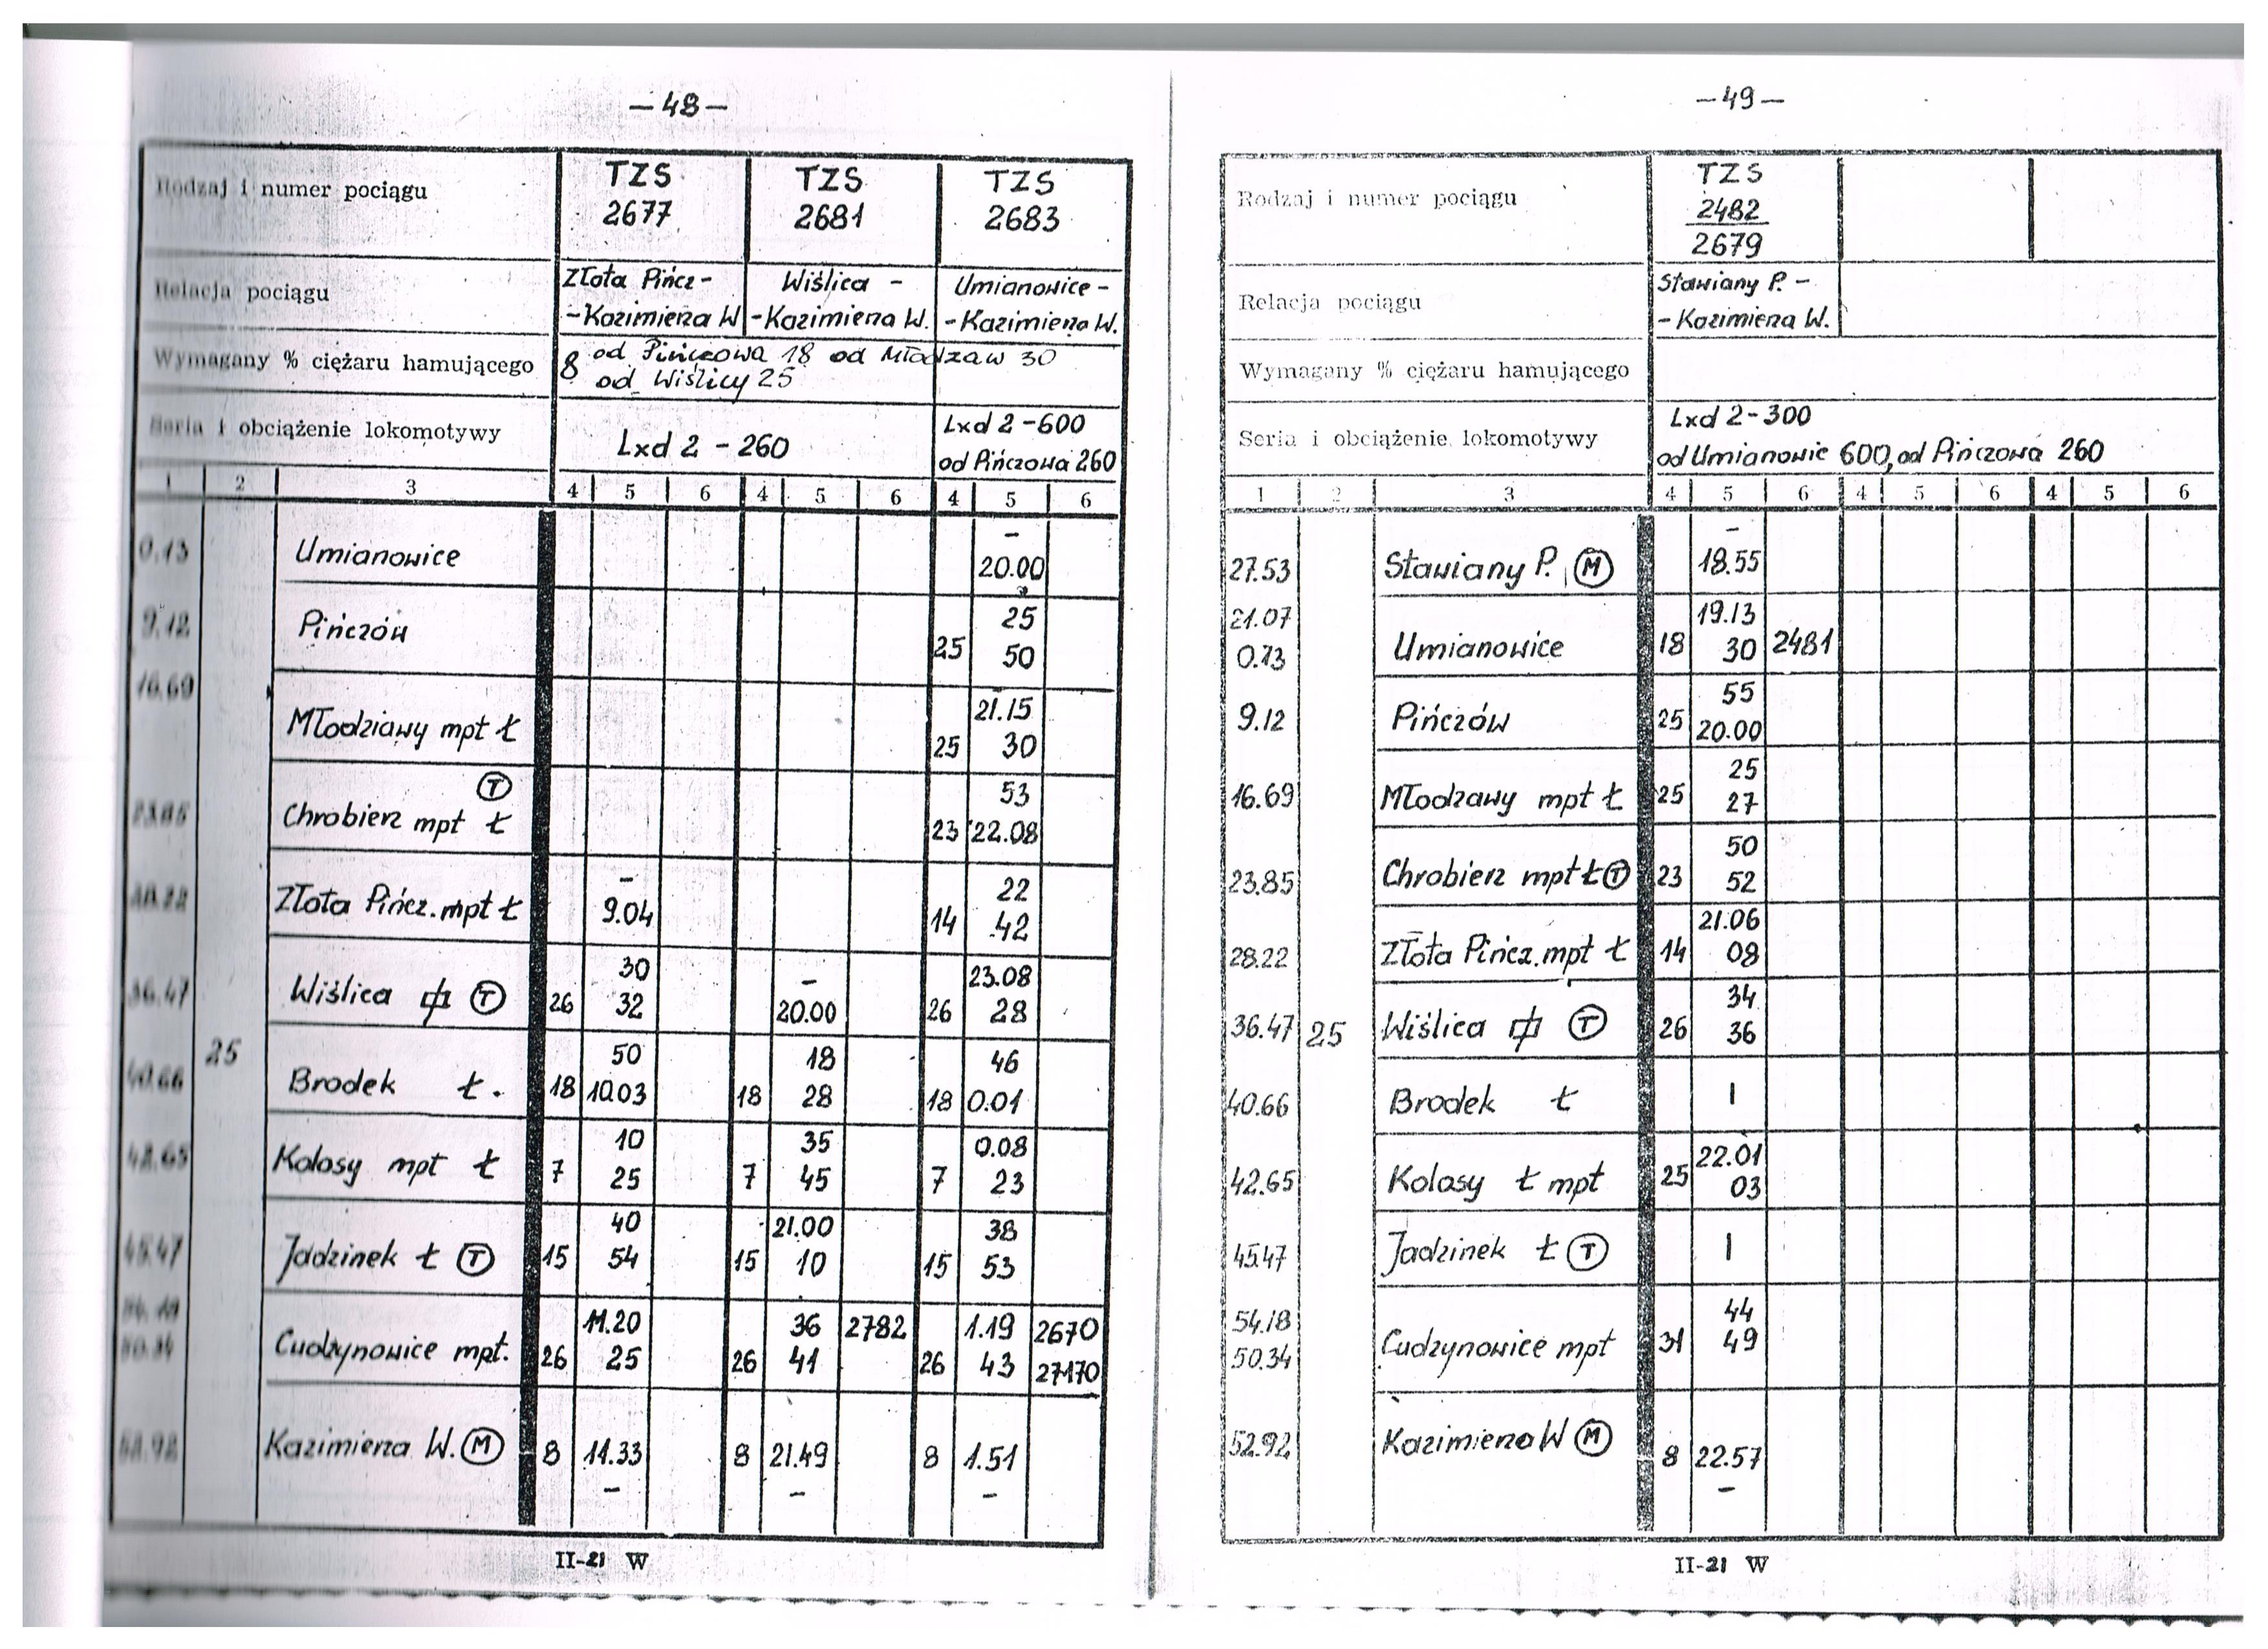 — 48 —
Rodzaj i numer pociągu TZS 2677 TZS 2681 TZS 2683
Relacja pociągu Złota Pińcz- -Kazimierza W Wiślica - -Kazimierza W. Umianowice - -Kazimierza W.
Wymagany % ciężaru hamującego 8 od Pińczowa 18 od Młodzaw 30
od Wiślicy 25
Seria i obciążenie lokomotywy Lxd 2 - 260 Lxd 2 - 600 od Pińczowa 260
1 2 3 4 5 6 4 5 6 4 5 6
0.13 Umianowice –
20.00
9.12 Pińczów 25
25 50
16.69 Młodziawy mpt Ł 21.15
25 30
Ⓣ 53
23.85 Chrobierz mpt Ł 23 22.08
28.22 Złota Pińcz. mpt Ł – 22
9.04 14 42
36.47 Wiślica Ⓣ 30 – 23.08
26 32 20.00 26 28
25
40.66 Brodek Ł. 50 18 46
18 10.03 18 28 18 0.01
42.65 Kolosy mpt Ł 10 35 0.08
7 25 7 45 7 23
45.47 Jadzinek Ł Ⓣ 40 21.00 38
15 54 15 10 15 53
54.18 11.20 36 2782 1.19 2670
50.34 Cudzynowice mpt. 26 25 26 41 26 43 27170
52.92 Kazimierza W. Ⓜ 8 11.33 8 21.49 8 1.51
– – –
II-21 W
— 49 —
Rodzaj i numer pociągu TZS 2482 2679
Relacja pociągu Stawiany P. - - Kazimierza W.
Wymagany % ciężaru hamującego
Seria i obciążenie lokomotywy Lxd 2 - 300
od Umianowic 600, od Pińczowa 260
1 2 3 4 5 6 4 5 6 4 5 6
–
27.53 Stawiany P. Ⓜ 18.55
21.07 19.13
0.13 Umianowice 18 30 2481
55
9.12 Pińczów 25 20.00
25
16.69 Młodzawy mpt Ł 25 27
50
23.85 Chrobierz mpt Ł Ⓣ 23 52
21.06
28.22 Złota Pińcz. mpt Ł 14 08
34
36.47 25 Wiślica Ⓣ 26 36
40.66 Brodek Ł |
22.01
42.65 Kolosy Ł mpt 25 03
45.47 Jadzinek Ł Ⓣ |
54.18 44
50.34 Cudzynowice mpt 31 49
52.92 Kazimierza W Ⓜ 8 22.57
–
II-21 W